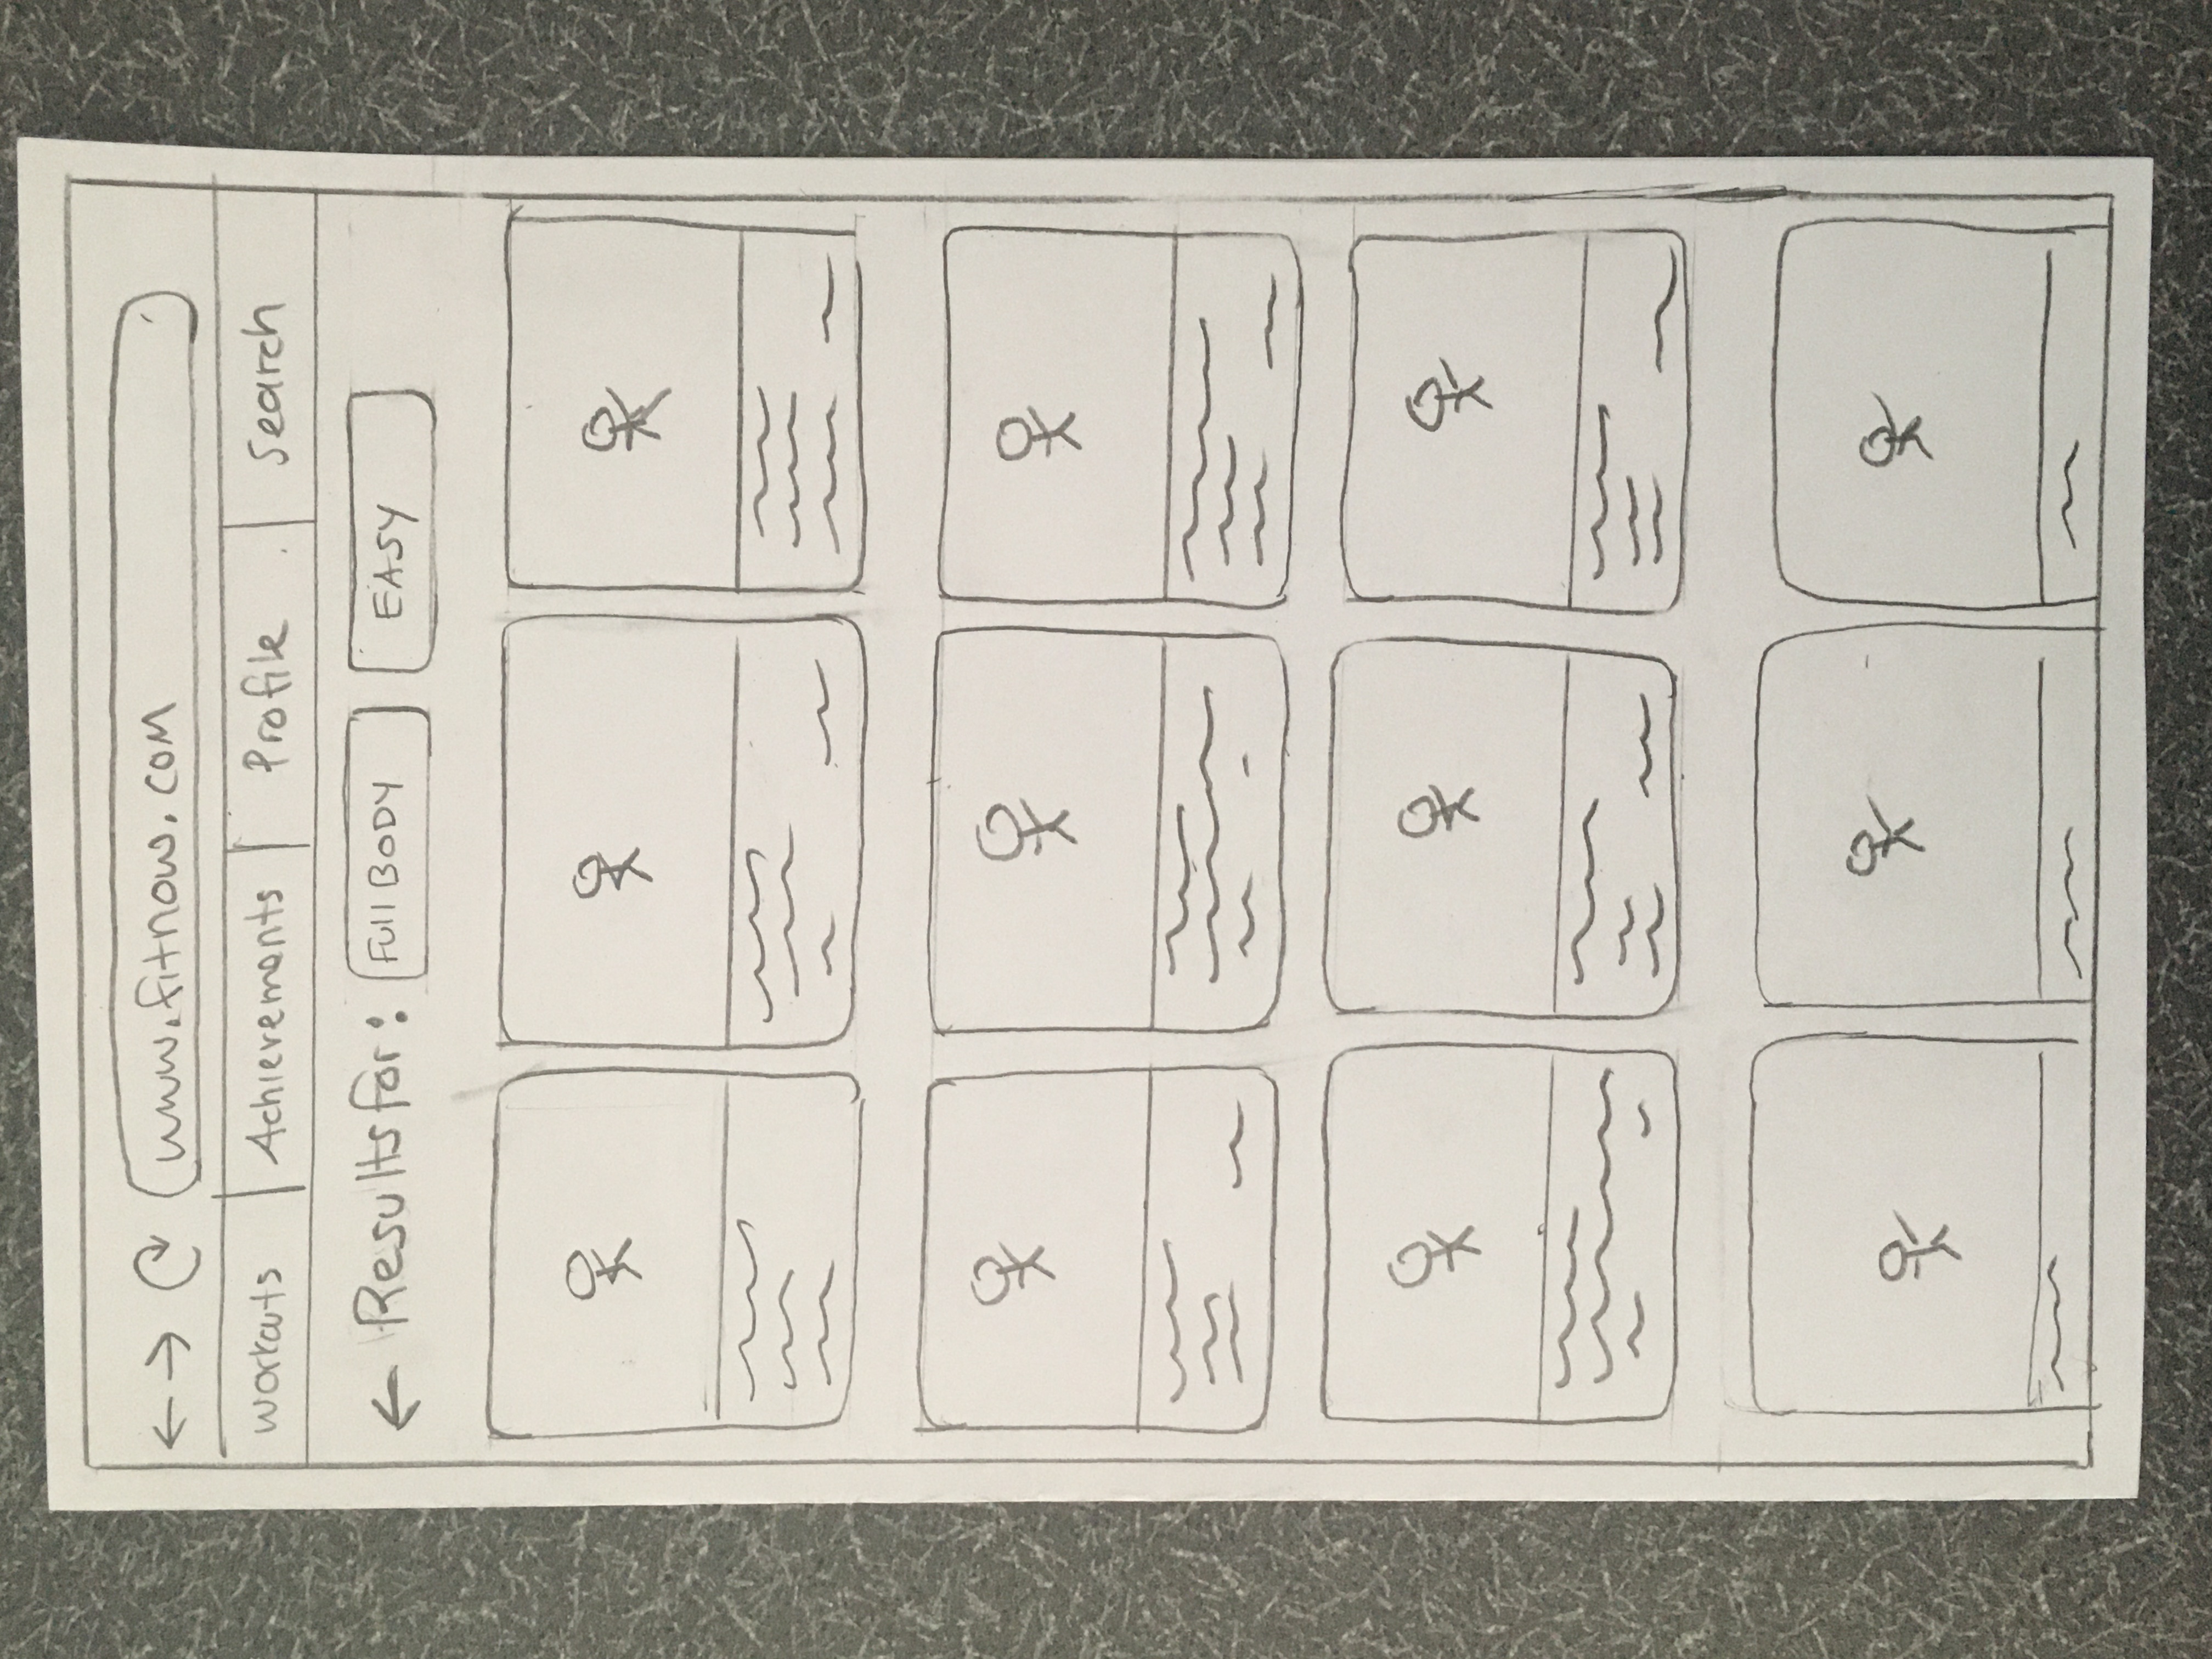 www.fitnow.com
Workouts Achievements Profile Search
Results for: Full BODY EASY